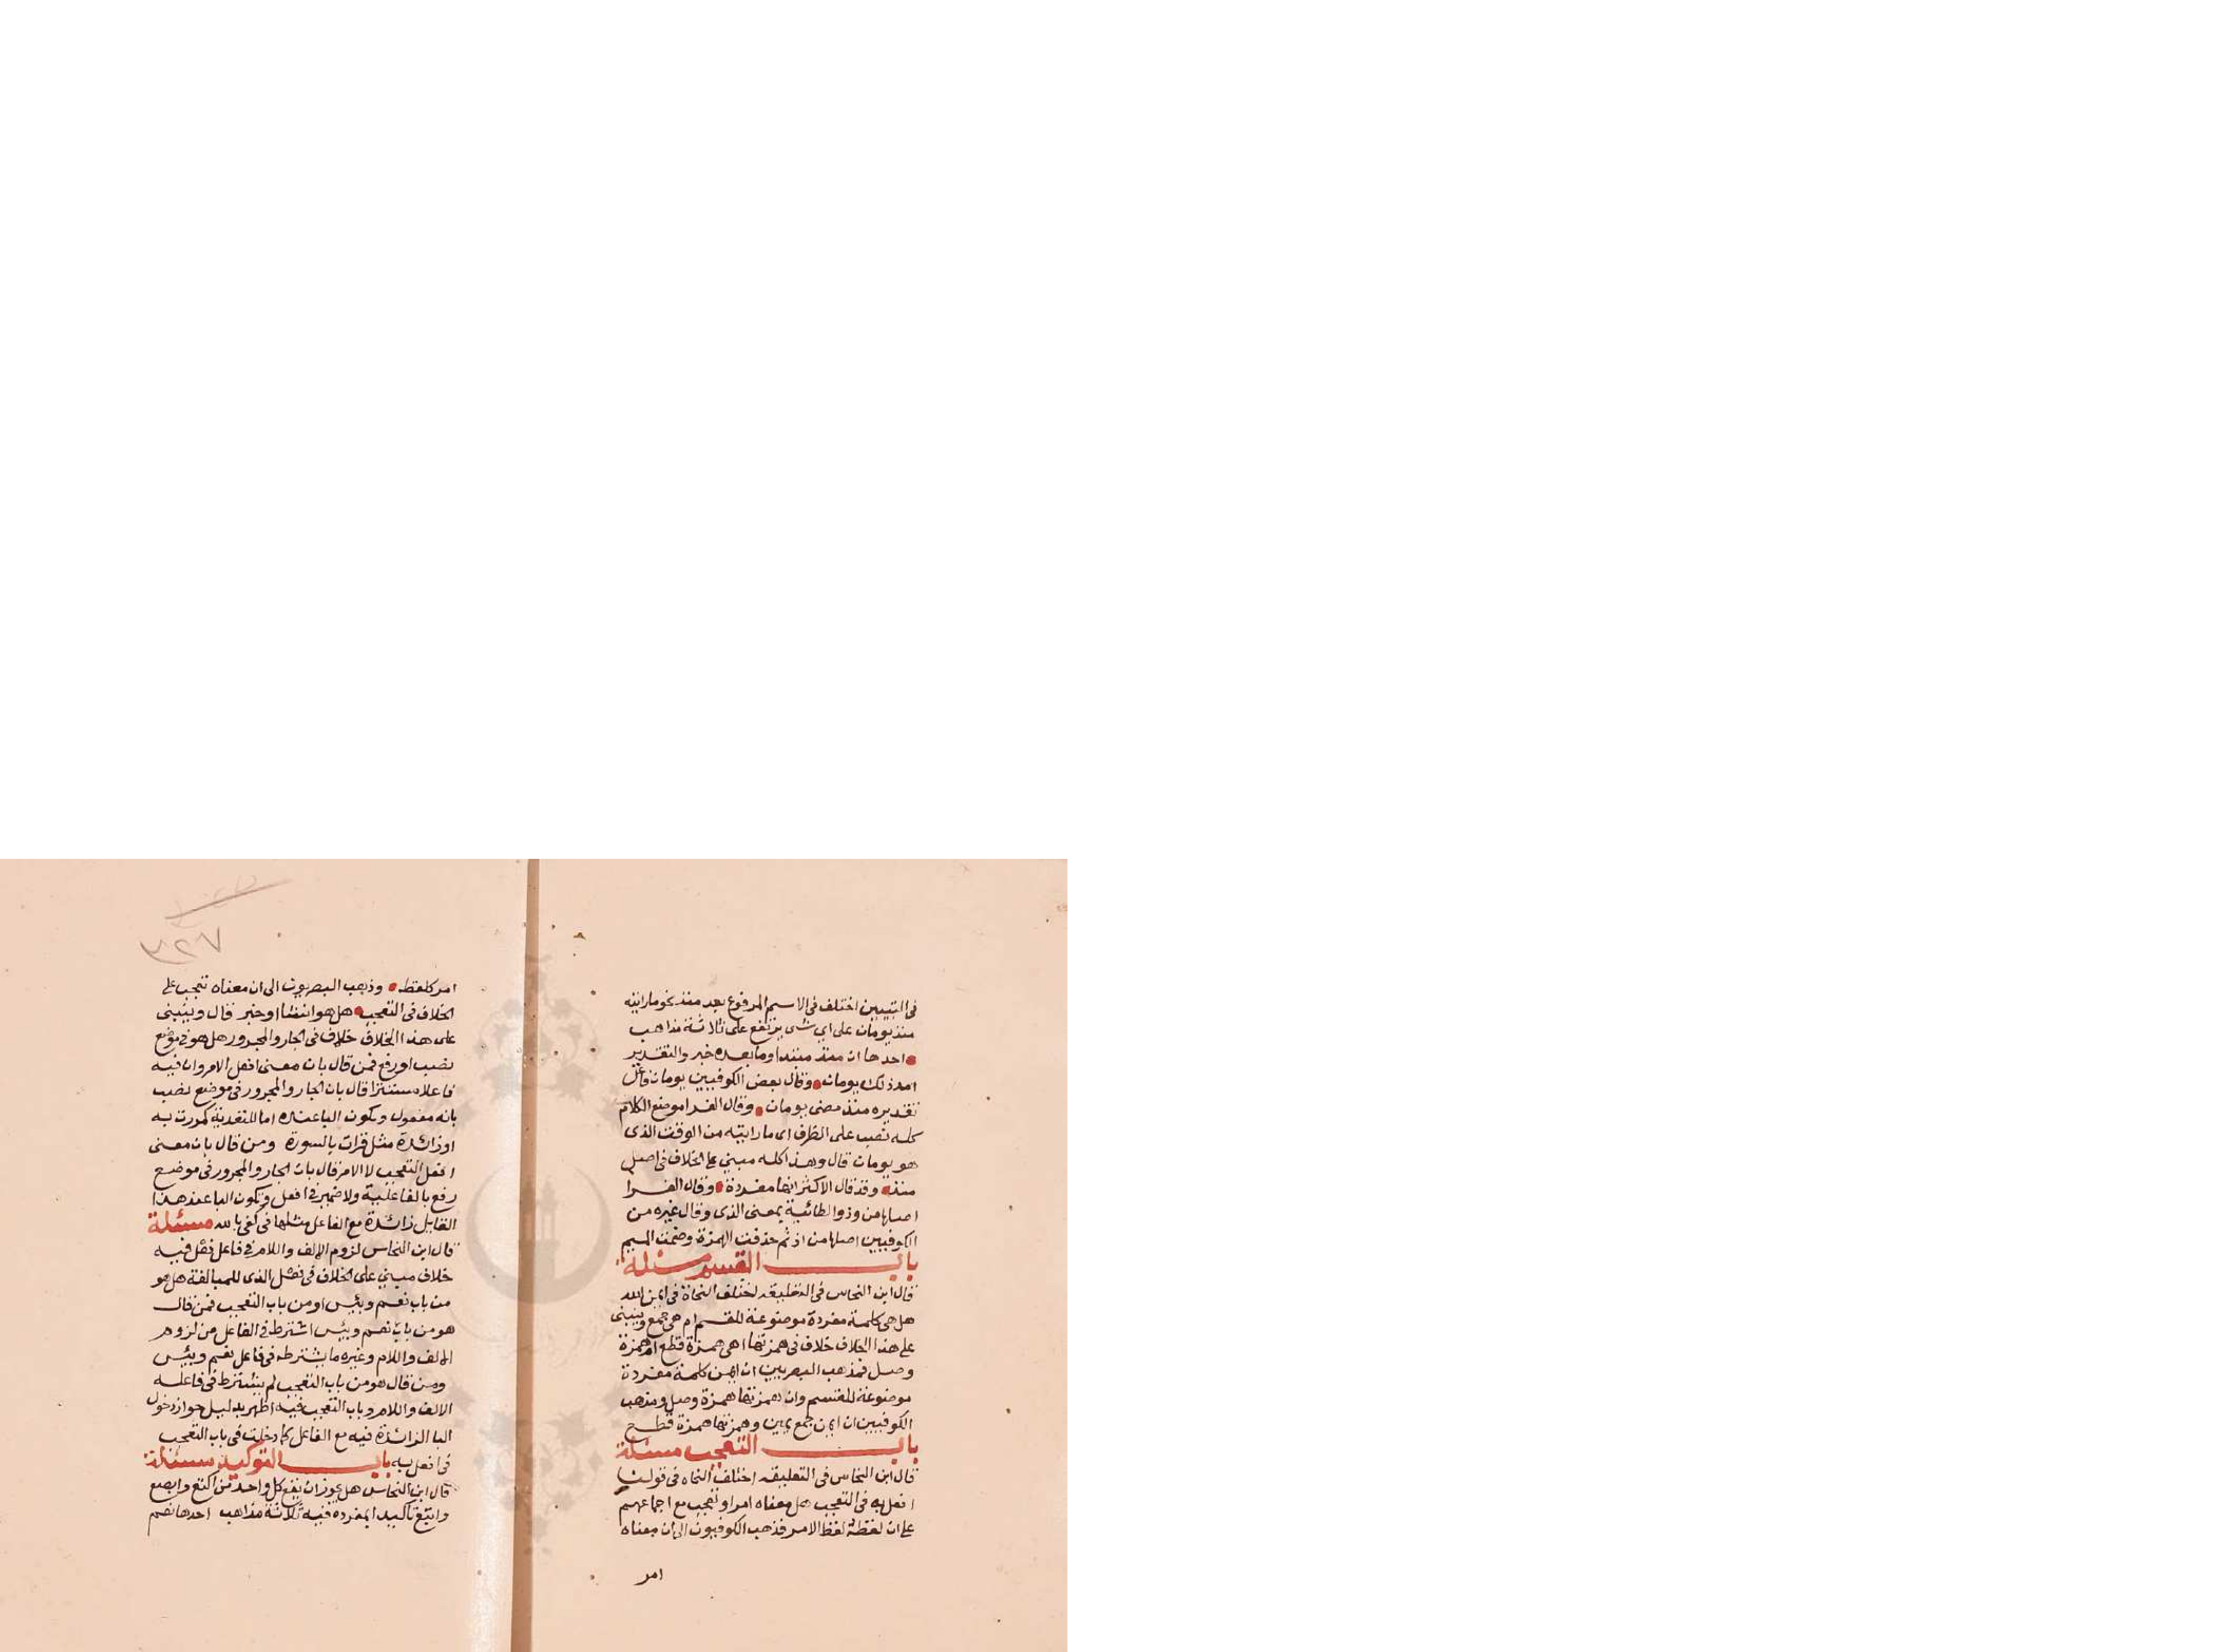 في التبيين اختلف في الاسم المرفوع بعد منذ نحو مارايته
منذ يومان على اي شى يرتفع على ثلاثة مذاهب
احدها ان منذ مبتدا وما بعده خبر والتقدير
امد ذلك يومان وقال بعض الكوفيين يومان فاعل
تقديره منذ مضى يومان وقال الفرا موضع الكلام
كله نصب على الظرف اى ما رايته من الوقت الذى
هو يومان قال وهذا كله مبني على الخلاف في اصل
منذ وقد قال الاكثر انها مفردة وقال الفرا
اصلها من وذو الطائية بمعنى الذى وقال غيره من
الكوفيين اصلها من اذ ثم حذفت الهمزة وضمت الميم
باب القسم مسئلة
قال ابن النحاس في التعليقه اختلف النحاة في ايمن الله
هل هي كلمة مفردة موضوعة للقسم ام هي جمع وينبنى
على هذا الخلاف خلاف في همزتها اهي همزة قطع ام همزة
وصل فمذهب البصريين ان ايمن كلمة مفردة
موضوعة للقسم وان همزتها همزة وصل ومذهب
الكوفيين ان ايمن جمع يمين وهمزتها همزة قطع
باب التعجب مسئلة
قال ابن النحاس في التعليقه اختلف النحاه في قولنا
افعل به في التعجب هل معناه امر او تعجب مع اجماعهم
على ان لفظه لفظ الامر فذهب الكوفيون الى ان معناه
امر
٣٢٧
امر كلفظه وذهب البصريون الى ان معناه تعجب على
الخلاف في التعجب هل هو انشاا او خبر قال وينبنى
على هذا الخلاف خلاف في الجار والمجرور هل هو في موضع
نصب او رفع فمن قال بان معنى افعل الامر وان فيه
فاعلا مستترا قال بان الجار والمجرور في موضع نصب
بانه مفعول وتكون البا عنده اما للتعدية كمررت به
او زائدة مثل قرات بالسورة ومن قال بان معنى
افعل التعجب لا الامر قال بان الجار والمجرور في موضع
رفع بالفاعلية ولا ضمير في افعل وتكون البا عند هذا
القايل زائدة مع الفاعل مثلها في كفى بالله مسئلة
قال ابن النحاس لزوم الالف واللام في فاعل فعل فيه
خلاف مبني على الخلاف في فعل الذى للمبالغة هل هو
من باب نعم وبئس او من باب التعجب فمن قال
هو من باب نعم وبئس اشترط في الفاعل من لزوم
الالف واللام وغيره ما يشترطه في فاعل نعم وبئس
ومن قال هو من باب التعجب لم يشترط في فاعله
الالف واللام وباب التعجب فيه اظهر بدليل جواز دخول
البا الزائدة فيه مع الفاعل كما دخلت في باب التعجب
في افعل به باب التوكيد مسئلة
قال ابن النحاس هل يجوز ان يقع كل واحد من اكتع وابصع
وابتع تاكيدا بمفرده فيه ثلاثة مذاهب احدها نعم